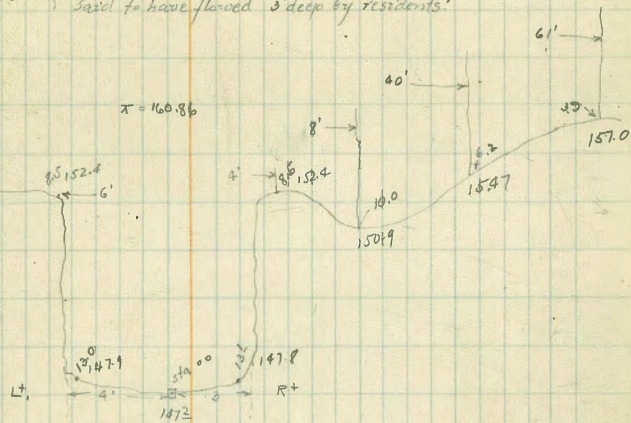 Said to have flowed 3' deep by residents.
61'
40'
π = 160.86
3.9
8'
157.0
8.5 152.4
6'
4'
8.5 152.4
6.2
154.7
10.0
150.9
13.0 147.9
Sta 00
13.1 147.8
Lt.
4'
3
Rt
147.2